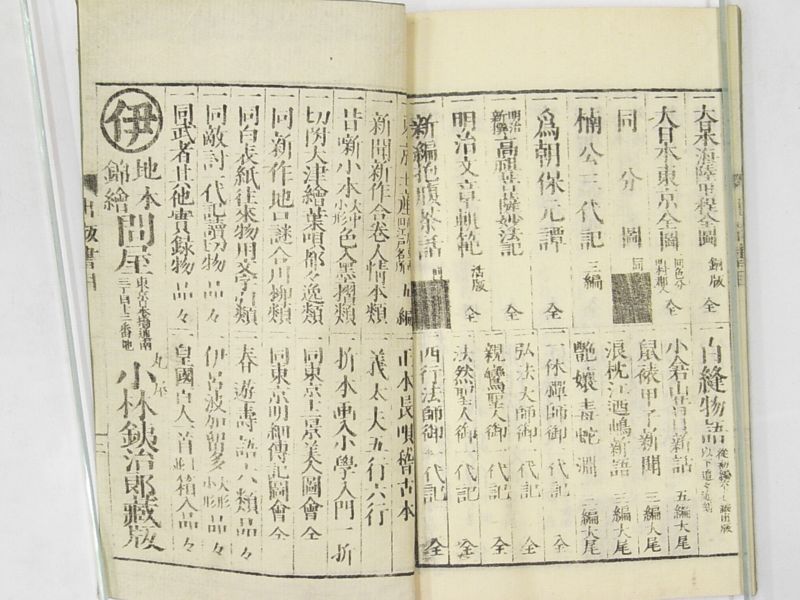 一 大日本海陸里程全圖 銅版 全
一 大日本東京全圖 同色分 全
一 同 分圖 同
一 楠公三代記 三編
一 爲朝保元譚 全
一 明治新撰 高祖菩薩妙法記 全
一 明治文章軌範 活版 全
一 新編
一 白縫物語
一 小倉山青樹新話 五編大尾
一 鼠裱甲子新聞 三編大尾
一 浪枕江迺嶋新語 三編大尾
一 艷孃毒蛇淵 三編大尾
一 一休禪師御一代記 全
一 弘法大師御一代記 全
一 親鸞聖人御一代記 全
一 法然聖人御一代記 全
一 西行法師御一代記 全
一 新聞新作合卷人情本類
一 昔噺小本 大中小形 色入墨摺類
一 切附大津繪葉唄都々逸類
一 同新作地口謎合川柳類
一 同白表紙往來物用文學書類
一 同敵討一代記讀切物 品々
一 同武者其他實録物 品々
一 正本長唄稽古本
一 義太夫五行六行
一 折本動入小學入門 一折
一 同東京土京美人圖會 全
一 同東京明細傳記圖會 全
一 春遊壽語六類 品々
一 伊呂波加留多 大形小形 品々
一 皇國百人一首 箱入品々
伊
地本
錦繪
問屋
東京日本橋通南
三丁目十三番地
丸屋
小林鉄治郎藏版